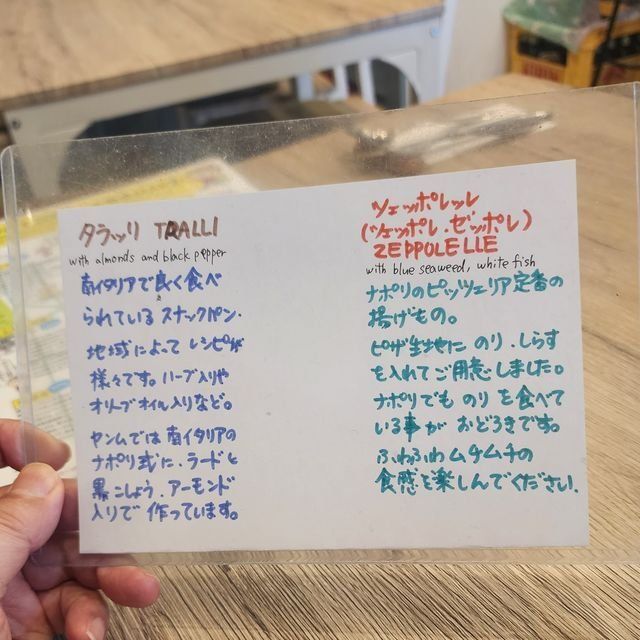 タラッリ TRALLI
with almonds and black pepper
南イタリアで良く食べ
られている スナックパン.
地域によって レシピが
様々です。ハーブ入りや
オリーブオイル入りなど。
ヤンムでは 南イタリアの
ナポリ式に、ラードと
黒こしょう、アーモンド
入りで 作っています。
ツェッポレッレ
(ツェッポレ、ゼッポレ)
ZEPPOLELLE
with blue seaweed, white fish
ナポリのピッツェリア定番の
揚げもの。
ピザ生地に のり、しらす
を入れてご用意しました。
ナポリでも のり を食べて
いる事が おどろきです。
ふわふわ ムチムチの
食感を楽しんでください.